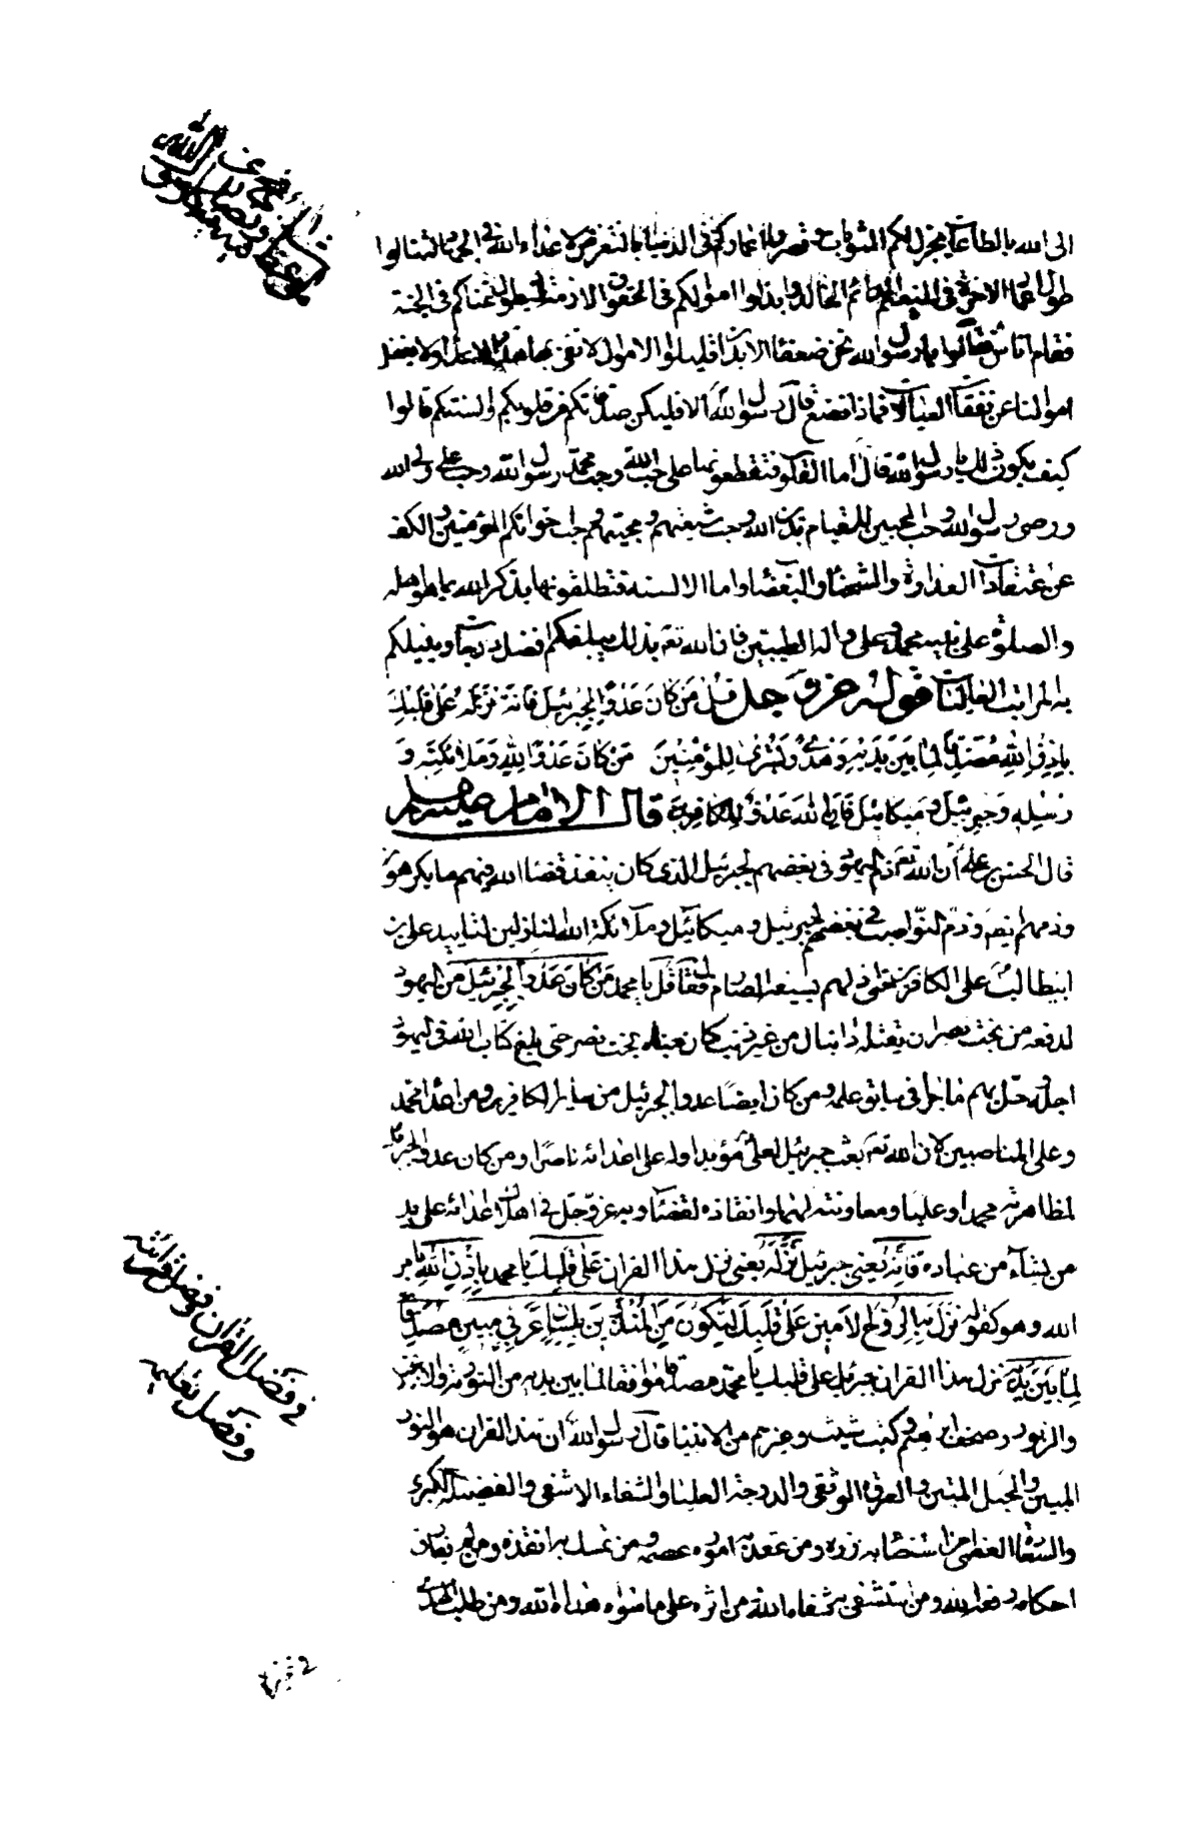 الى الله بالطاعات يجزل لكم المثوبات وقصروا اعماركم فى الدنيا بالتعرض لاعداء الله فى الجهاد لتنالوا
طول اعمار الاخرة فى النعيم الدائم الخالد وابذلوا اموالكم فى الحقوق اللازمة ليطول غناكم فى الجنة
فقام اناس فقالوا يا رسول الله نحن ضعفاء الابدان قليلوا الاموال لا نفى بمجاهدة الاعداء ولا يفضل
اموالنا عن نفقات العيالات فماذا نصنع قال رسول الله الا فليكن صدقاتكم من قلوبكم والسنتكم قالوا
كيف يكون ذلك يا رسول الله قال اما القلوب فتقطعونها على حب الله وحب محمد رسول الله وحب على ولى الله
ووصى رسول الله وحب المحبين للقيام بدين الله وحب شيعتهم ومحبيهم وحب اخوانكم المؤمنين والكف
عن اعتقادات العداوة والشحناء والبغضاء واما الالسنة فتطلقونها بذكر الله بما هو اهله
والصلوة على نبيه محمد وعلى واله الطيبين فان الله تعه بذلك يبلغكم افضل الدرجات وينيلكم
به المراتب العاليات قوله عز و جل قُل مَن كانَ عَدُوّا لِجِبرئيل فَاِنّه نَزّلَهُ عَلى قَلبِكَ
بِاِذنِ اللهِ مُصَدِّقًا لِما بَينَ يَدَيهِ وَهُدىً وَبُشرىٰ لِلمُؤمِنينَ مَن كانَ عَدُوّا لِلّهِ وَمَلائكَتِه وَ
رُسُلِه وَجِبرئيلَ وَ مِيكائيلَ فَاِنّ اللهَ عَدُوٌّ لِلكافِرينَ قال الامام عليه السلام
قال الحسن بن على ان الله تعه ذم اليهود فى بغضهم لجبرئيل الذى كان ينفذ قضاء الله فيهم ما يكرهون
وذمهم ايضه وذم النواصب فى بغضهم لجبرئيل وميكائيل وملائكة الله النازلين لتاييد على بن
ابيطالب على الكافرين حتى اذلهم بسيفه الصارم فقال قل يا محمد مَن كان عَدُوّا لِجِبرئيلَ من اليهود
لدفعه من بخت نصر ان يقتله دانيال من غير ذنب كان جناه بخت نصر حتى بلغ كتاب الله فى اليهود
اجله وحل بهم ما جرى فى سابق علمه ومن كان ايضًا عدوا لجبرئيل من سائر الكافرين ومن اعداء محمد
وعلى المناصبين لان الله تعه بعث جبرئيل لعلى مؤيدا وله على اعدائه ناصرًا ومن كان عدوا لجبرئيل
لمظاهرته محمدا وعليا ومعاونته لهما وانفاذه لقضاء ربه عز وجل فى اهلاك اعدائه على يد
من يشاء من عباده فَاِنّه يعنى جبرئيل نَزّلَهُ يعنى نزل هذا القران عَلى قَلبِكَ يا محمد بِاِذنِ اللهِ بامر
الله وهو كقوله نَزَلَ بِهِ الرُّوحُ الاَمين عَلى قَلبِكَ لِتَكُونَ مِنَ المُنذِرينَ بِلِسانٍ عَرَبِيٍّ مُبينٍ مُصَدِّقًا
لِما بَينَ يَدَيهِ نزل هذا القران جبرئيل على قلبك يا محمد مصدقا موافقا لما بين يديه من التورية والانجيل
والزبور وصحف ابرهيم وكتب شيث وغيرهم من الانبياء قال رسول الله ان هذا القران هو النور
المبين والحبل المتين والعروة الوثقى والدرجة العليا والشفاء الاشفى والفضيلة الكبرى
والسعادة العظمى من استضاء به نوره ومن عقد به اموره عصمه ومن تمسك به انقذه ومن لم يفارق
احكامه رفعه الله ومن استشفى به شفاه الله من اثره على ما سواه هداه الله ومن طلب الهدى
فى فضل القران وفضل قرائته
وفضل تعليمه